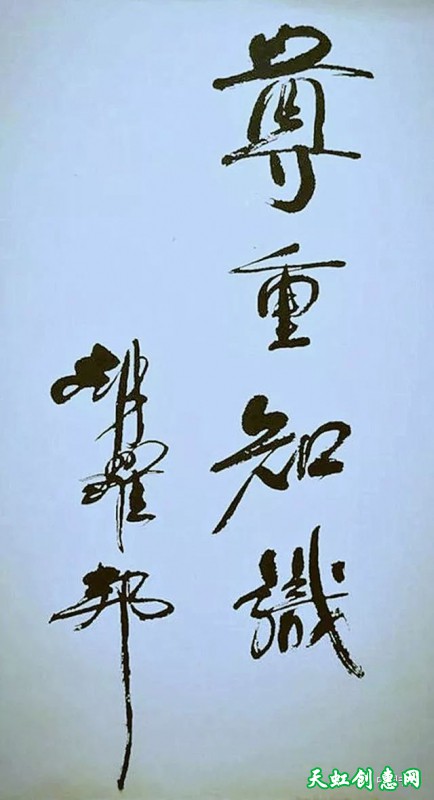 尊重知識
胡耀邦
天虹创惠网